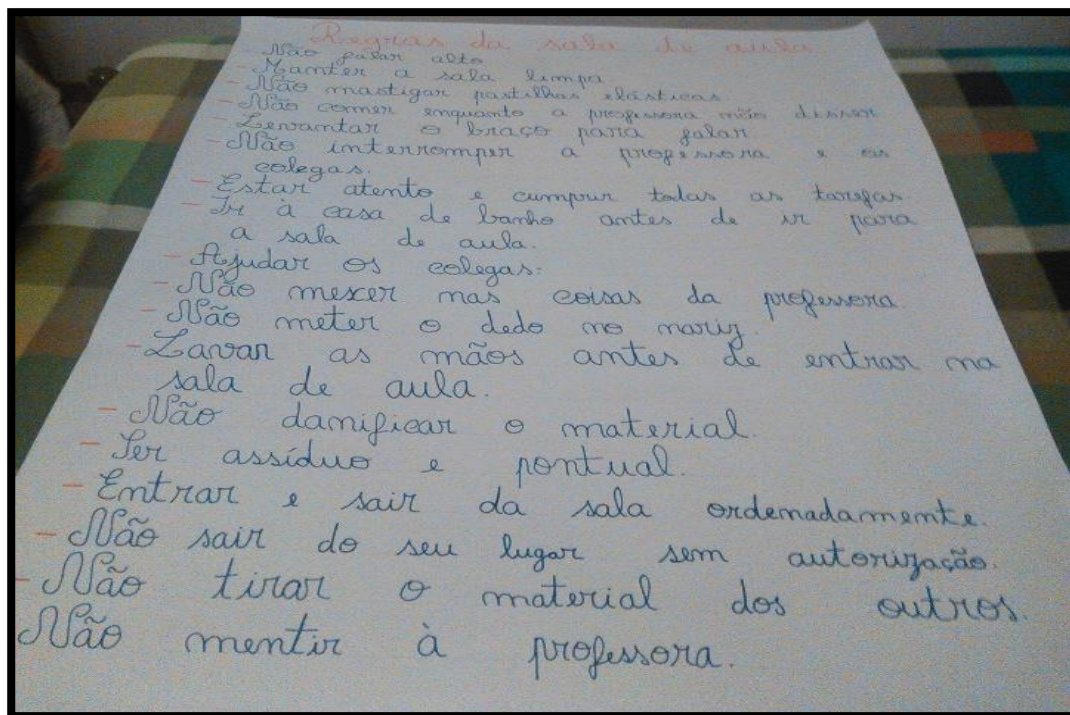 Regras da sala de aula
- Não falar alto
- Manter a sala limpa.
- Não mastigar pastilhas elásticas.
- Não comer enquanto a professora não disser
- Levantar o braço para falar.
- Não interromper a professora e os
colegas.
- Estar atento e cumprir todas as tarefas
- Ir à casa de banho antes de ir para
a sala de aula.
- Ajudar os colegas.
- Não mexer nas coisas da professora
- Não meter o dedo no nariz.
- Lavar as mãos antes de entrar na
sala de aula.
- Não danificar o material.
- Ser assíduo e pontual.
- Entrar e sair da sala ordenadamente.
- Não sair do seu lugar sem autorização.
- Não tirar o material dos outros.
Não mentir à professora.